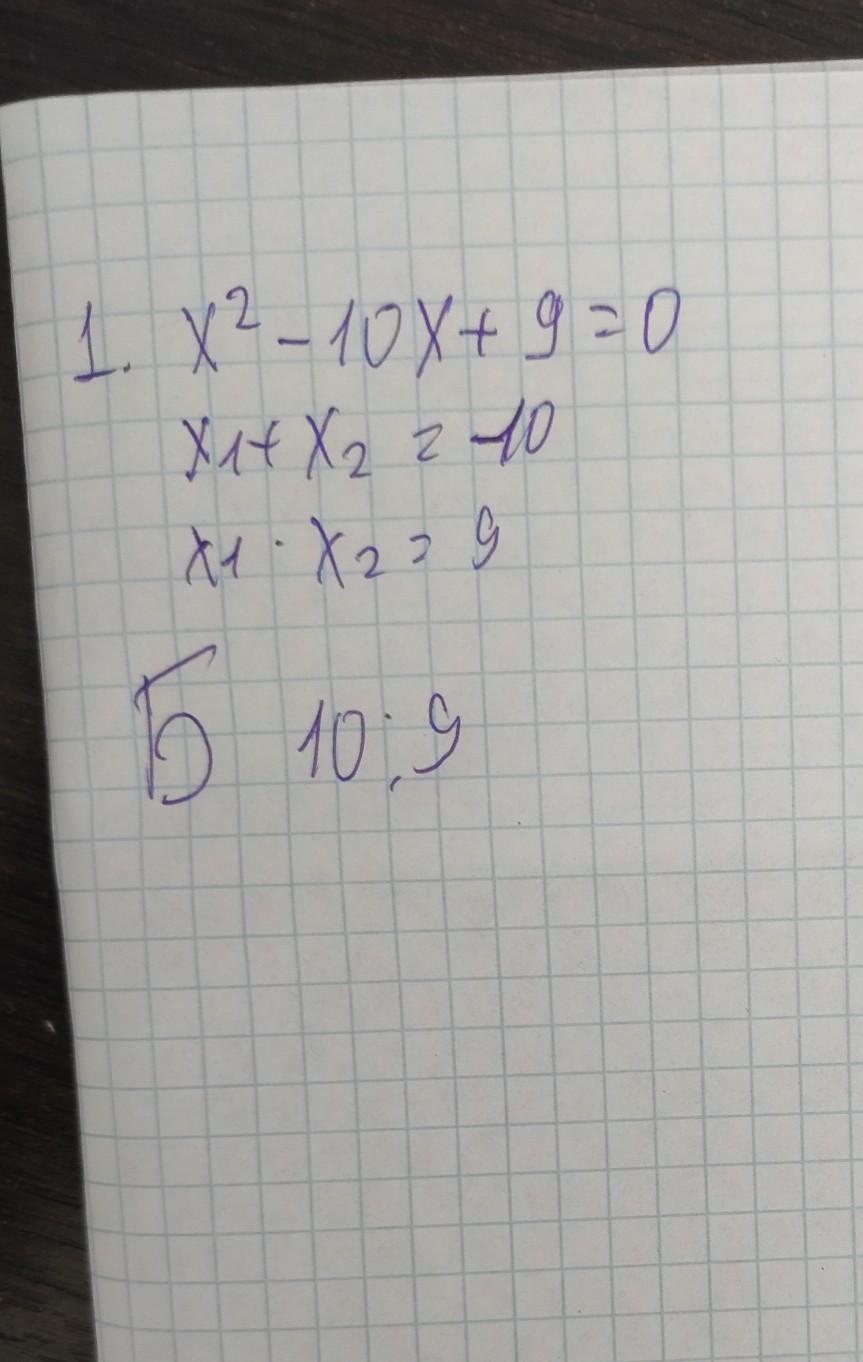 1. x² - 10x + 9 = 0
x1 + x2 = -10
x1 · x2 = 9
Б 10; 9